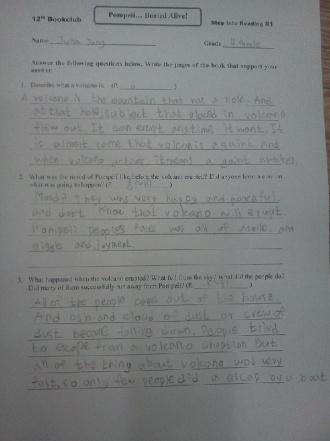 12th Bookclub
Pompeii... Buried Alive!
Step Into Reading S1
Name Julia Jung
Grade
Answer the following questions below. Write the pages of the book that support your
answer.
1. Describe what a volcano is. (P. 6 )
A volcano is the mountain that has a hole. And
at that hole, subject that placed in volcano
flew out. It can erupt anytime it want. It
is almost come that volcano is a gaint and
when volcano it means a gaint awakes.
2. What was the mood of Pompeii like before the volcano erupted? Did anyone know
what was going to happen? (P. )
Mood? They was very happy and peaceful
and don't know that volcano will erupt.
Pompeii peoples face was all of smile and
and joyment.
3. What happened when the volcano erupted? What fell from the sky? What did the people do?
Did many of them successfully run away from Pompeii? (P. )
All of the people came out of the house
And ash and cloud of dust or of
dust became falling down. People tried
to escape from a volcano eruption But
all of the thing about volcano was very
fast, so only few people did a